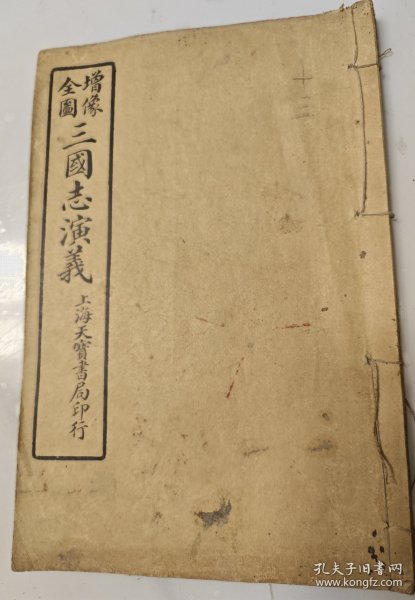 增像全圖三國志演義
上海天寶書局印行
十三
孔夫子旧书网
www.kongfz.com